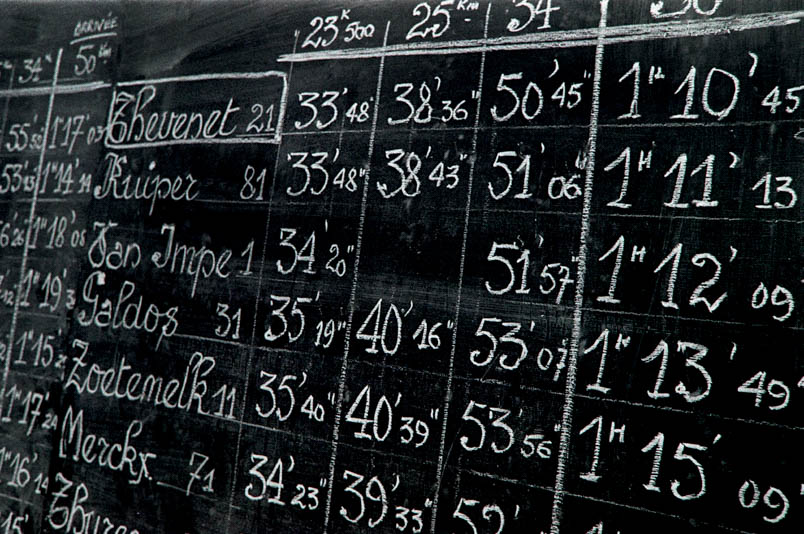 ARRIVÉE 23K500 25Km 34
34K 50Km
Thevenet 21 33'48" 38'36" 50'45" 1H 10' 45
1H17'03 Kuiper 81 33'48" 38'43" 51'06" 1H 11' 13
1H14' Van Impe 1 34'20" 51'57" 1H 12' 09
1H18'05 Galdos 31 35'19" 40'16" 53'07" 1H 13' 49
1H19' Zoetemelk 11 35'40" 40'39" 53'56" 1H 15' 09
1H15' Merckx 71 34'23" 39'33" 52'
1H17'
1H16'